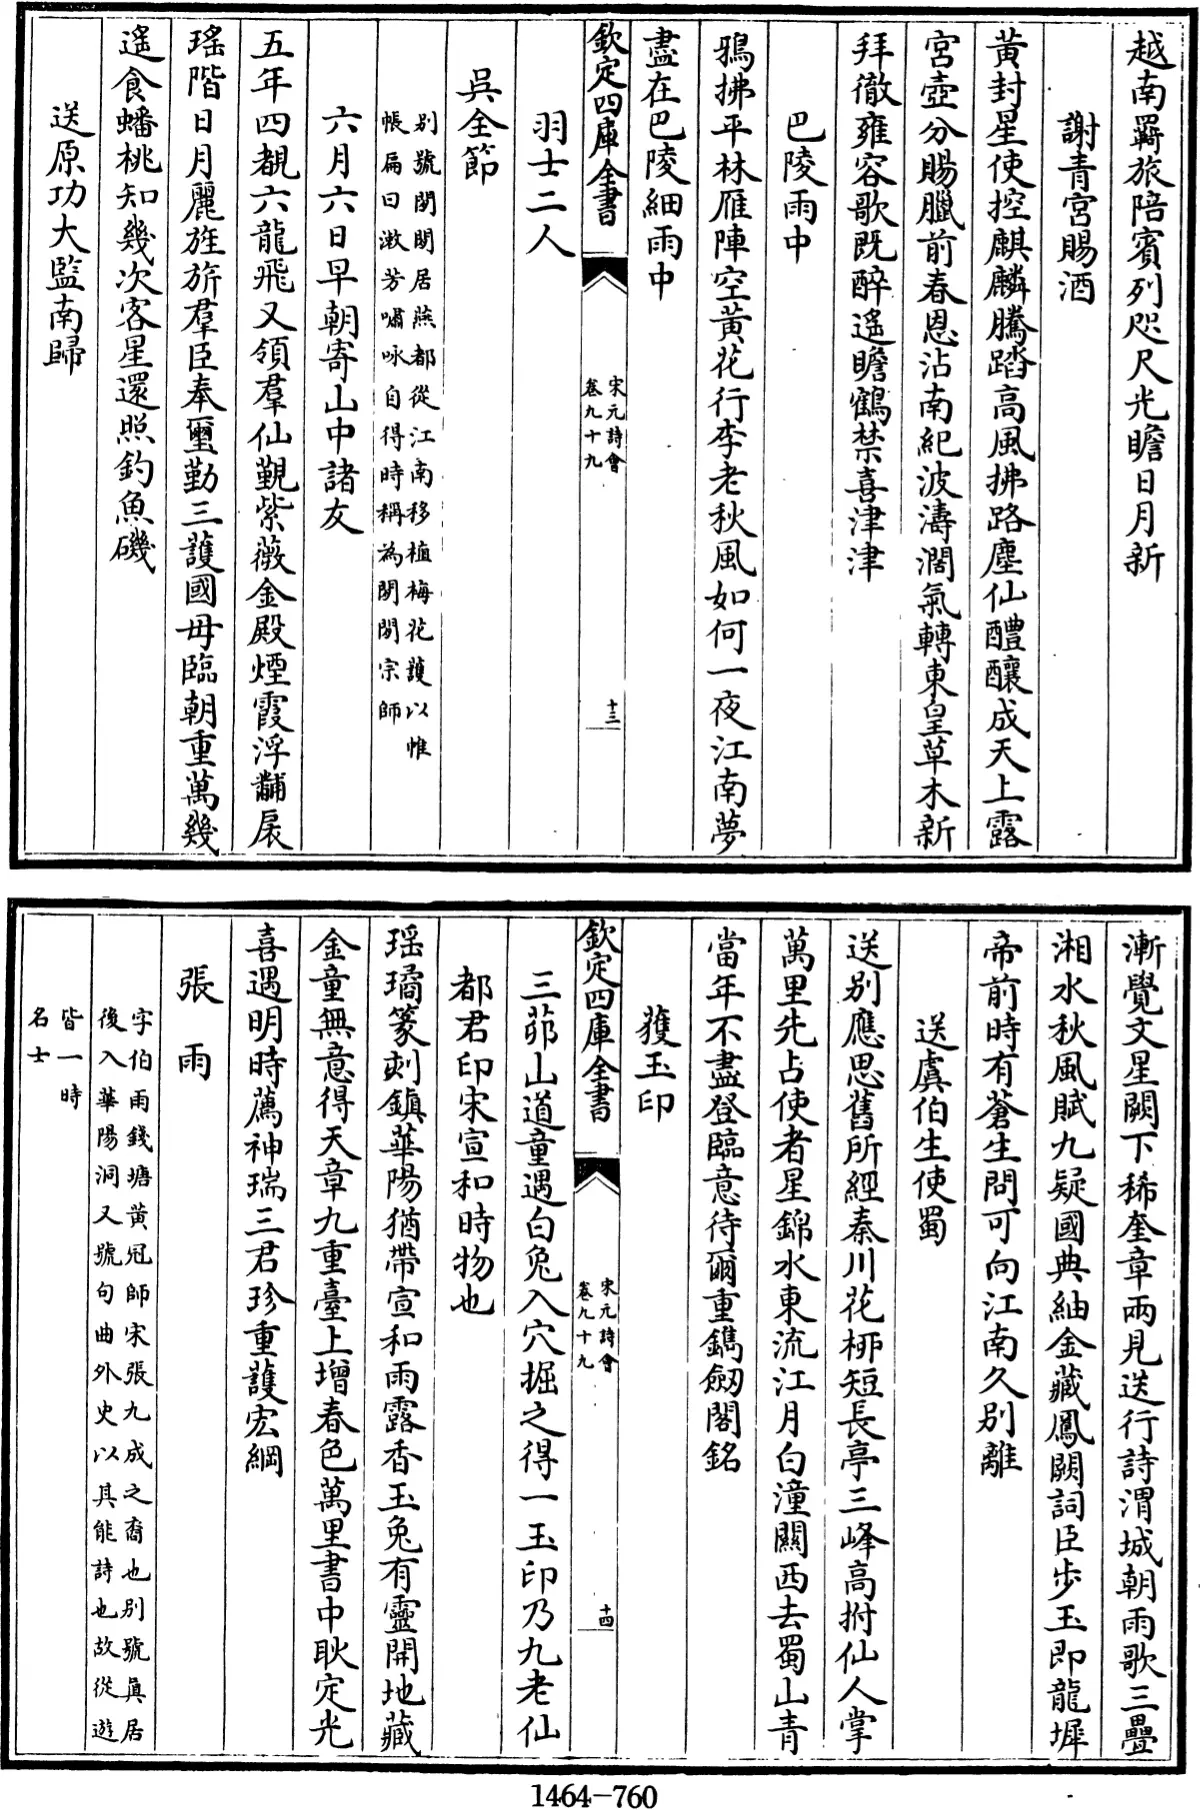 越南羇旅陪賓列咫尺光瞻日月新
謝青宮賜酒
黃封星使控麒麟騰踏高風拂路塵仙醴釀成天上露
宮壺分賜臘前春恩沾南紀波濤濶氣轉東皇草木新
拜徹雍容歌既醉遙瞻鶴禁喜津津
巴陵雨中
鴉拂平林雁陣空黃花行李老秋風如何一夜江南夢
盡在巴陵細雨中
欽定四庫全書
宋元詩會
卷九十九
十三
羽士二人
吳全節
別號閒閒居燕都從江南移植梅花護以帷
帳扁曰漱芳嘯咏自得時稱為閒閒宗師
六月六日早朝寄山中諸友
五年四覩六龍飛又領羣仙覲紫薇金殿煙霞浮黼扆
瑤階日月麗旌旂羣臣奉璽勤三護國母臨朝重萬幾
遙食蟠桃知幾次客星還照釣魚磯
送原功大監南歸
漸覺文星闕下稀奎章兩見送行詩渭城朝雨歌三疊
湘水秋風賦九疑國典紬金藏鳳闕詞臣步玉即龍墀
帝前時有蒼生問可向江南久別離
送虞伯生使蜀
送別應思舊所經秦川花柳短長亭三峰高拊仙人掌
萬里先占使者星錦水東流江月白潼關西去蜀山青
當年不盡登臨意待爾重鐫劒閣銘
獲玉印
欽定四庫全書
宋元詩會
卷九十九
十四
三茆山道童遇白兔入穴掘之得一玉印乃九老仙
都君印宋宣和時物也
瑶璚篆刻鎮華陽猶帶宣和雨露香玉兔有靈開地藏
金童無意得天章九重臺上增春色萬里書中耿定光
喜遇明時薦神瑞三君珍重護宏綱
張雨
字伯雨錢塘黃冠師宋張九成之裔也別號真居
後入華陽洞又號句曲外史以其能詩也故從遊
皆一時
名士
1464-760